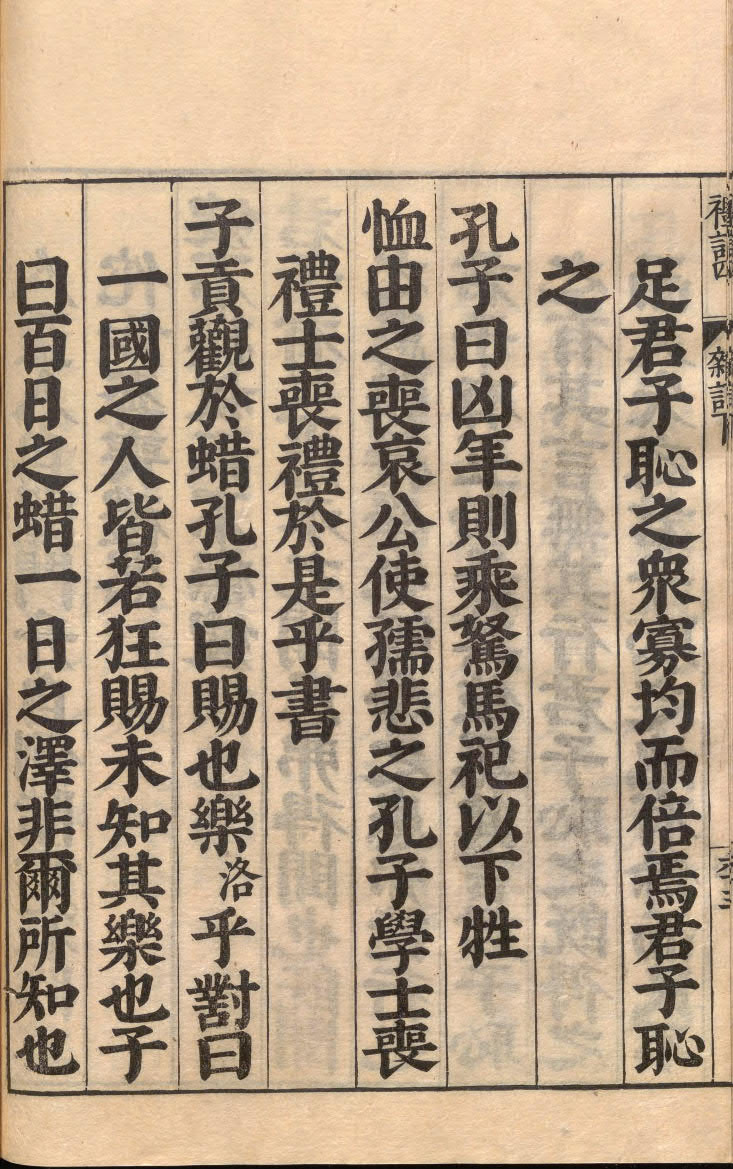 禮記 雜記下
足君子恥之衆寡均而倍焉君子恥
之
孔子曰凶年則乘駑馬祀以下牲
恤由之喪哀公使孺悲之孔子學士喪
禮士喪禮於是乎書
子貢觀於蜡孔子曰賜也樂洛乎對曰
一國之人皆若狂賜未知其樂也子
曰百日之蜡一日之澤非爾所知也